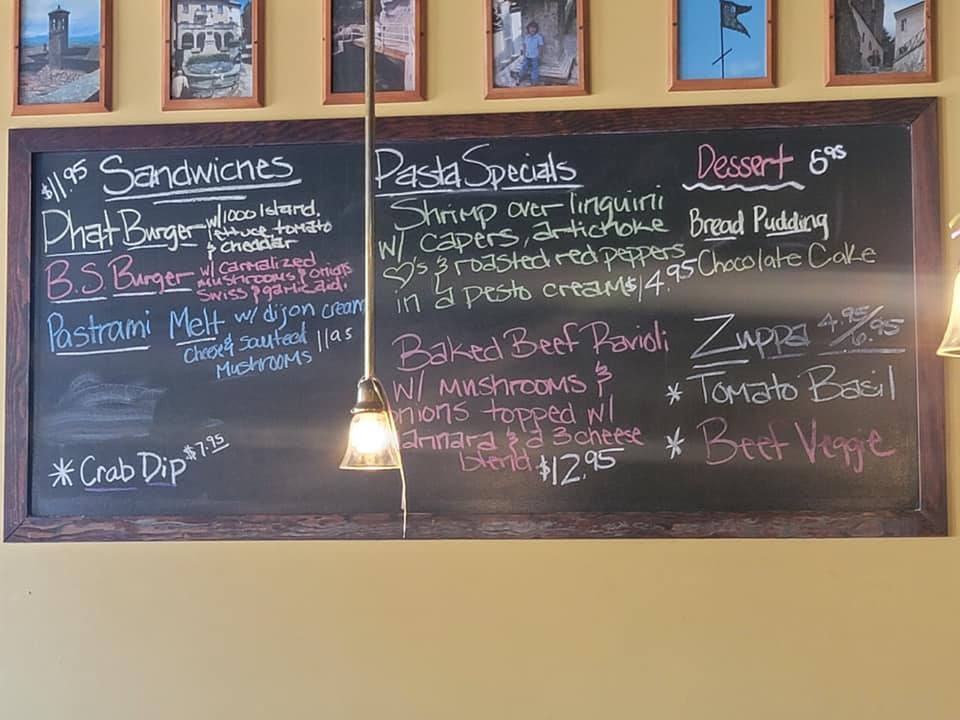 $11.95 Sandwiches
Dhat Burger w/1000 Island,
lettuce, tomato
& cheddar
B.S. Burger w/ Carmalized
mushrooms & onions
Swiss & garlic aioli
Pastrami Melt w/ dijon cream
cheese & sauteed 11.95
Mushrooms
* Crab Dip $7.95
Pasta Specials
Shrimp over linguini
w/ capers, artichoke
♡'s & roasted red peppers
in a pesto cream $14.95
Baked Beef Ravioli
w/ mushrooms &
onions topped w/
marinara & a 3 cheese
blend $12.95
Dessert 6.95
Bread Pudding
Chocolate Cake
Zuppa 4.95/6.95
* Tomato Basil
* Beef Veggie